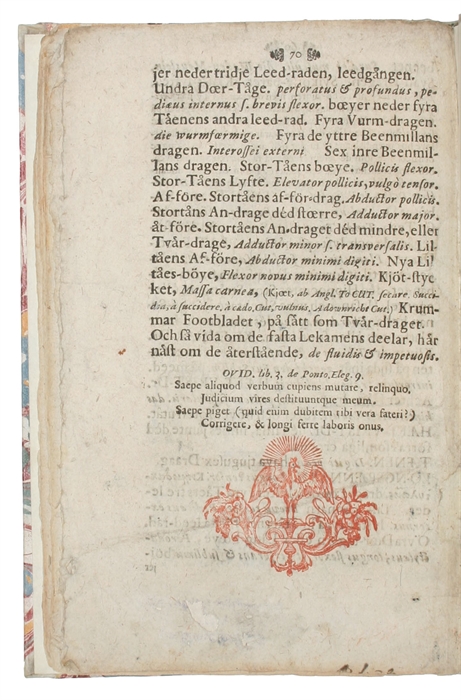 70
jer neder tridje Leed-raden, leedgången.
Undra Dœr-Tåge. perforatus & profundus, pe-
diæus internus s. brevis flexor. bœyer neder fyra
Tåenens andra leed-rad. Fyra Vurm-dragen.
die wurmfœrmige. Fyra de yttre Beenmillans
dragen. Interossei externi Sex inre Beenmil-
lans dragen. Stor-Tåens bœye. Pollicis flexor.
Stor-Tåens Lyfte. Elevator pollicis, vulgò tensor.
Af-före. Stortåens af-för-drag. Abductor pollicis.
Stortåns An-drage déd stœrre, Adductor major.
åt-före. Stortåens An-draget déd mindre, eller
Tvår-drage, Adductor minor s. transversalis. Lil-
tåens Af-före, Abductor minimi digiti. Nya Li-
tåes-böye, Flexor novus minimi digiti. Kjöt-styc
ket, Massa carnea, (Kjœt, ab Angl. To CUT. secare. Succi-
dia, à succidere, à cædo, Cut, vulnus, A downricht Cut.) Krum-
mar Footbladet, på sått som Tvår-draget.
Och så vida om de fasta Lekamens deelar, hår
nåst om de återstående, de fluidis & impetuosis.
OVID. lib. 3. de Ponto, Eleg. 9.
Saepe aliquod verbum cupiens mutare, relinquo,
Judicium vires destituuntque meum.
Saepe piget (quid enim dubitem tibi vera fateri?)
Corrigere, & longi ferre laboris onus.